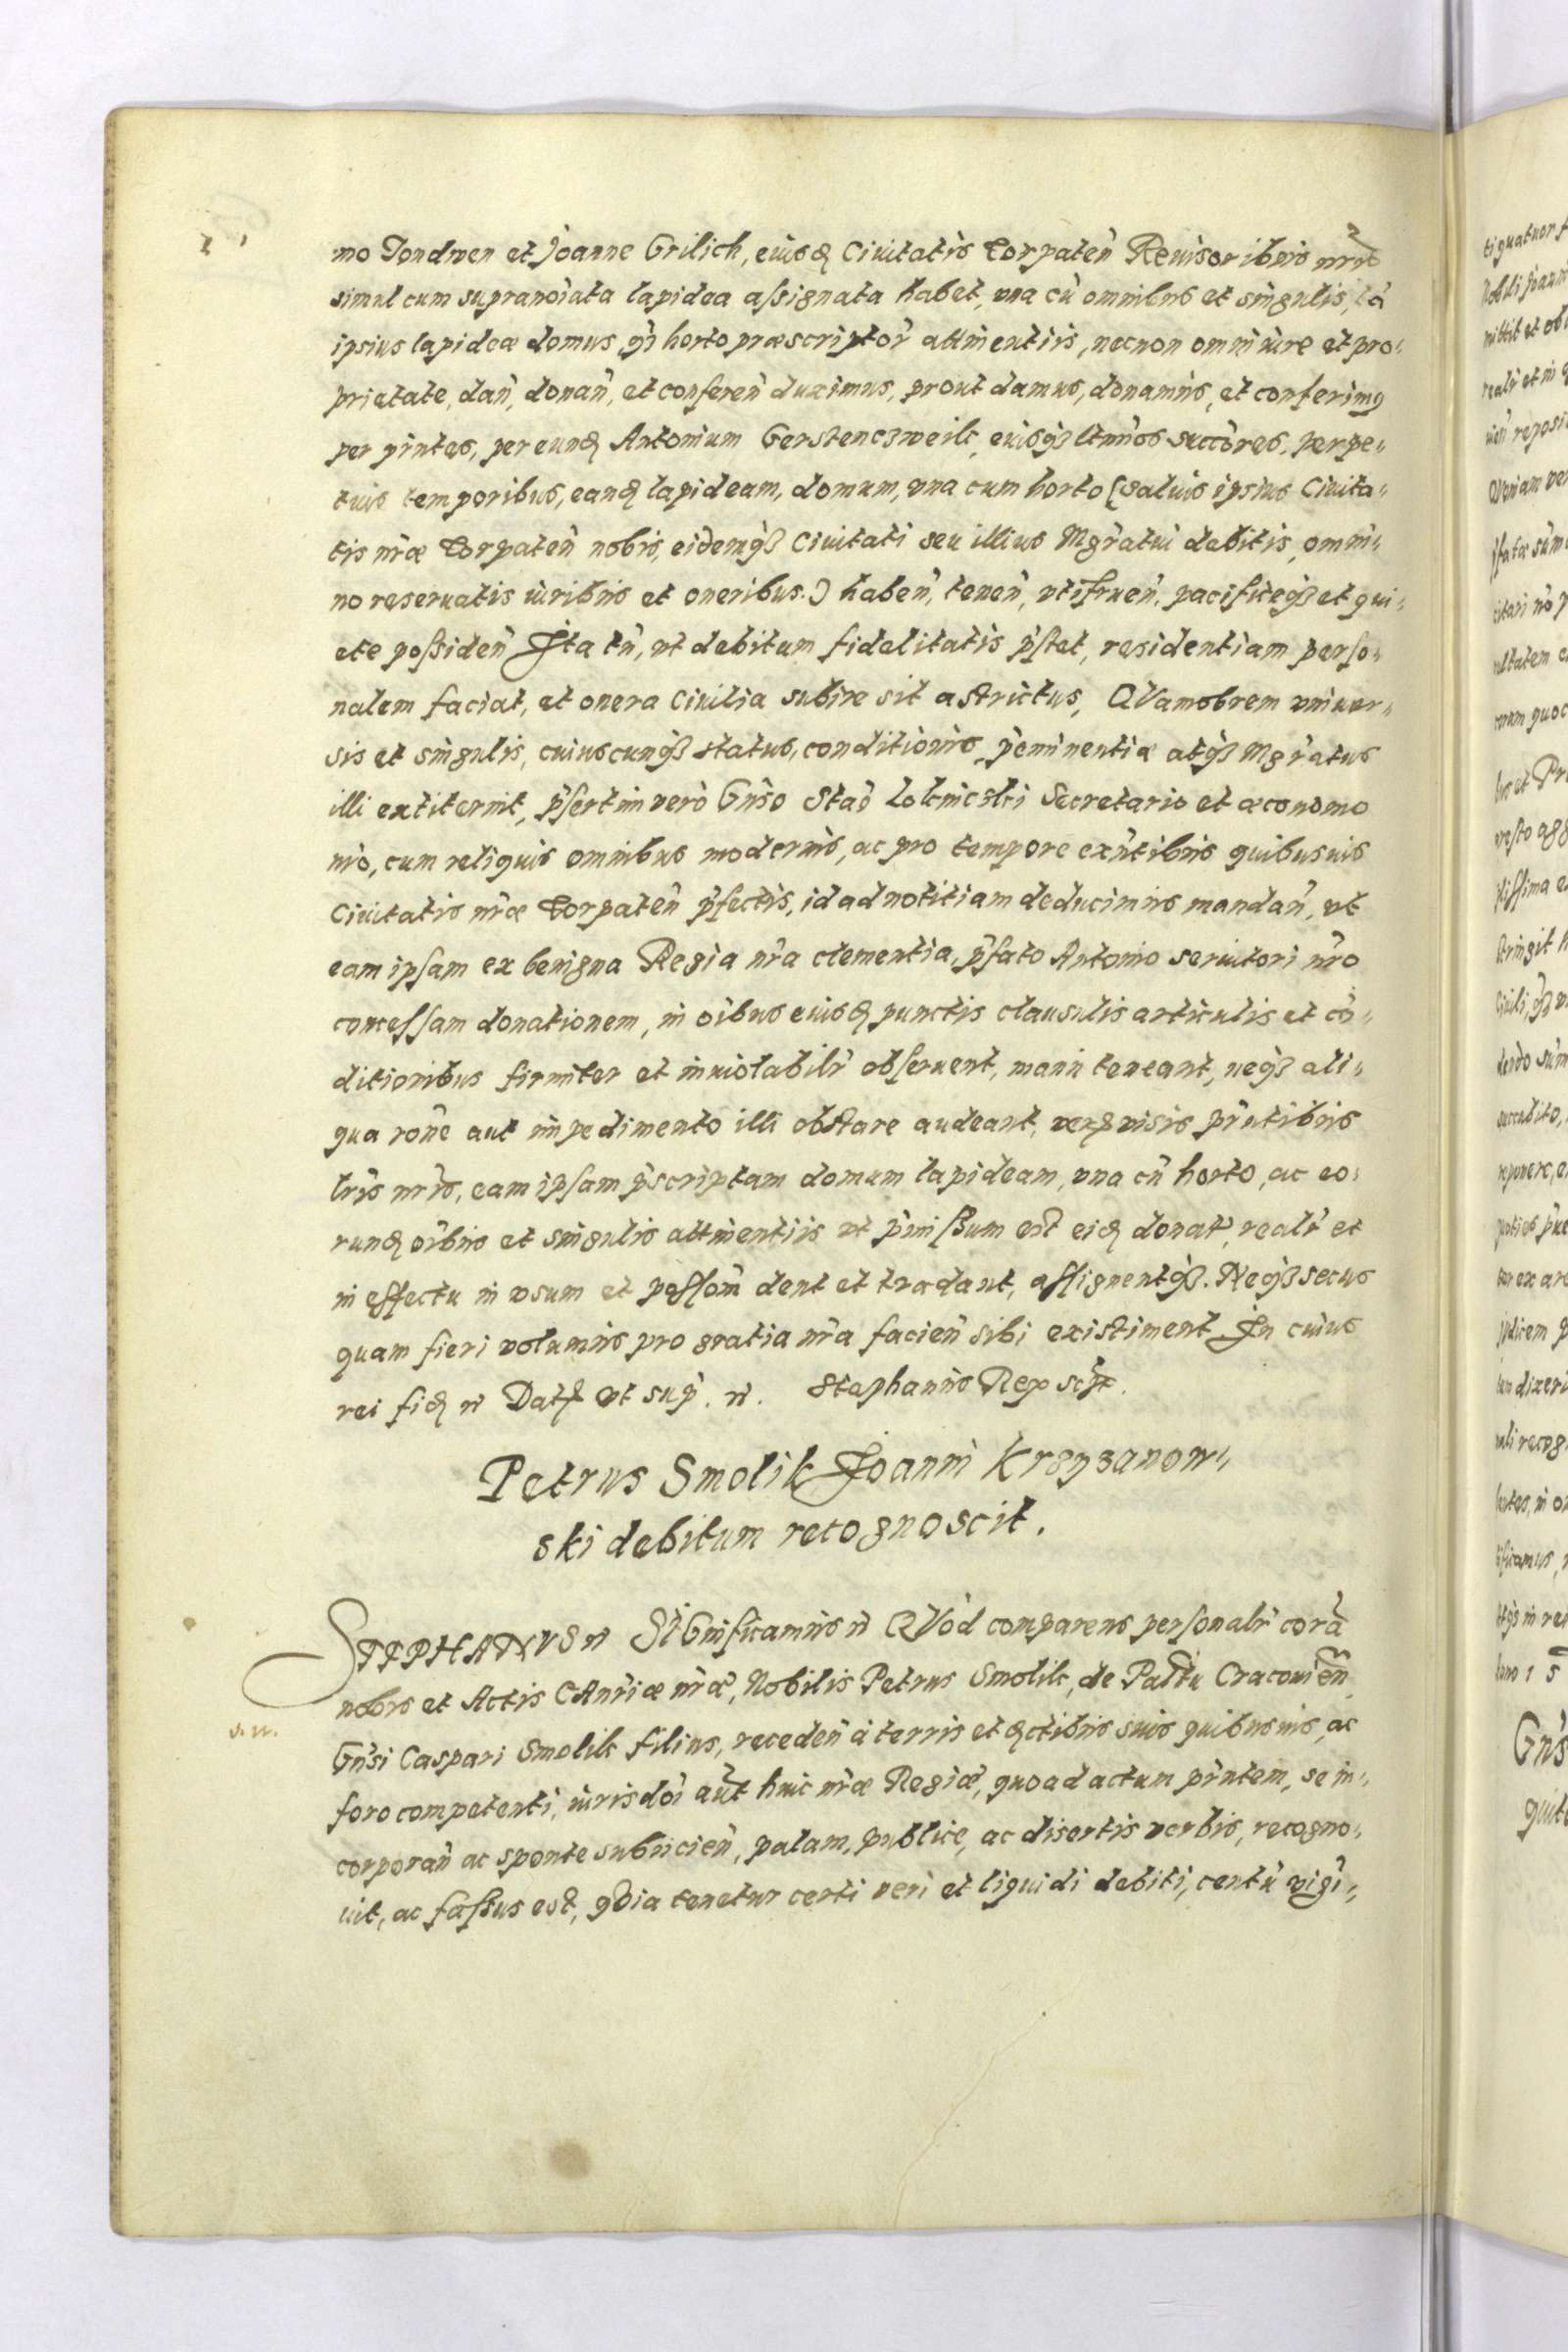 mo Tondwen et Joanne Grilich, eiusdꝫ Ciuitatis Torpaten̄ Reuisoribus nr̄is
simul cum supranoīata lapidea aſsignata habet, vna cū omnibus et singulis, tā
ipsius lapideæ domus, q̄ꝫ horto præscriptor̄ attinentiis, necnon omni iure et pro„
prietate, dan̄, donan̄, et conferen̄ duximus, prout damus, donamus, et conferimꝯ
per p̄ntes, per eundꝫ Antonium Gerstenczweik, eiusqꝫ ltimos succ̄ores, perpe„
tuis temporibus, eandꝫ lapideam, domum, vna cum horto (saluis ipsius Ciuita„
tis nr̄æ Torpaten̄ nobis, eidemqꝫ Ciuitati seu illius Mgr̄atui debitis, omni„
no reseruatis iuribus et oneribus.) haben̄, tenen̄, vtifruen̄, pacificeqꝫ et qui„
ete poſsiden̄ Ita tn̄, vt debitum fidelitatis p̄ſtet, residentiam perſo„
nalem faciat, et onera Ciuilia subire sit astrictus, QVamobrem vniuer„
sis et singulis, cuiuscunqꝫ status, conditionis, p̄eminentiæ atqꝫ Mgr̄atus
illi extiterint, p̄ſertim verò Gn̄so Stan̄ Loknicski Secretario et œconomo
nr̄o, cum reliquis omnibus modernis, ac pro tempore exn̄tibus quibusuis
Ciuitatis nr̄æ Torpaten̄ p̄fectis, id ad notitiam deducimus mandan̄, vt
eam ipſam ex benigna Regia nr̄a clementia, p̄fato Antonio seruitori nr̄o
conceſſam donationem, in oībus eiusdꝫ punctis clausulis articulis et cō„
ditionibus firmiter et inuiolabilr̄ obſeruent, manu teneant, neqꝫ ali„
qua rōne aut impedimento illi obstare audeant, verꝫ visis pn̄tibus
lr̄is nr̄is, eam ipſam p̄scriptam domum lapideam, vna cū horto, ac eo„
rundꝫ oībus et singulis attinentiis vt p̄miſsum est eidꝫ donat̄, realr̄ et
in effectu in vsum et poſſom̄ dent et tradant, aſſignentqꝫ. Neqꝫ secus
quam fieri volumus pro gratia nr̄a facien̄ sibi existiment In cuius
rei fidꝫ n̄ Datꝫ vt sup̄. n̄. Stephanus Rex scp̄t.
Petrus Smolik Joanni Krzyzanow„
ski debitum recognoscit.
STEPHANVS n̄ SIGnificamus n̄ QVòd comparens perſonalr̄ corā
nobis et Actis CAnr̄iæ nr̄æ, Nobilis Petrus Smolik, de Paltu Cracouien̄
Gn̄si Caspari Smolik filius, receden̄ à terris et dꝫctibus suis quibusuis, ac
foro competenti, iurisdoī aūt huic nr̄æ Regiæ, quo ad actum pn̄tem, se in„
corporan̄ ac sponte subiicien̄, palam, publice, ac disertis verbis, recogno„
uit, ac faſsus est, qvia tenetur certi veri et liquidi debiti, centū vigī„